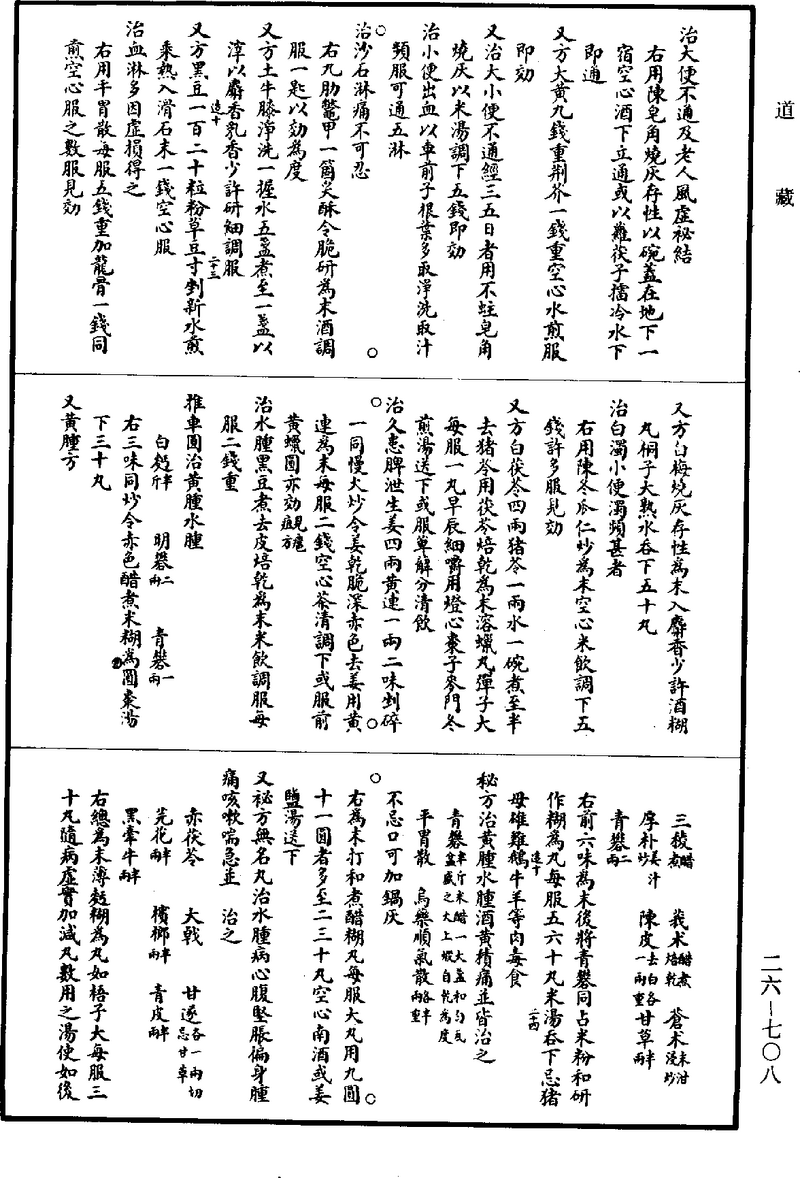 道藏
治大便不通及老人風虛祕結
右用陳皂角燒灰存性以碗蓋在地下一
宿空心酒下立通或以雞茯子擂冷水下
即通
又方大黃九錢重荆芥一錢重空心水煎服
即効
又治大小便不通經三五日者用不蛀皂角
燒灰以米湯調下五錢即効
治小便出血以車前子根葉多取淨洗取汁
頻服可通五淋
治沙石淋痛不可忍
右九肋鱉甲一箇炙酥令脆研為末酒調
服一匙以効為度
又方土牛膝淨洗一握水五盞煮至一盞以
淳以麝香乳香少許研細調服
遠十
二十三
又方黑豆一百二十粒粉草豆寸剉新水煎
乘熱入滑石末一錢空心服
治血淋多因虛損得之
右用平胃散每服五錢重加龍骨一錢同
煎空心服之數服見効
又方白梅燒灰存性為末入麝香少許酒糊
丸桐子大熟水吞下五十丸
治白濁小便濁頻甚者
右用陳冬瓜仁炒為末空心米飲調下五
錢許多服見効
又方白茯苓四兩猪苓一兩水一碗煮至半
去猪苓用茯苓焙乾為末溶蠟丸彈子大
每服一丸早辰細嚼用燈心棗子麥門冬
煎湯送下或服萆解分清飲
治久患脾泄生姜四兩黃連一兩二味剉碎
一同慢火炒令姜乾脆深赤色去姜用黃
連為末每服二錢空心茶清調下或服前
黃蠟圓亦効見瘧方
治水腫黑豆煮去皮焙乾為末米飲調服每
服二錢重
推車圓治黃腫水腫
白麪半斤 明礬二兩 青礬一兩
右三味同炒令赤色醋煮米糊為圓棗湯
下三十丸
又黃腫方
三稜醋煮 莪朮醋煮焙乾 蒼朮米泔浸炒
厚朴姜汁炒 陳皮去白各一兩重 甘草半兩
青礬二兩
右前六味為末後將青礬同占米粉和研
作糊為丸每服五六十丸米湯吞下忌猪
遠十
二十四
母雄雞鵝牛羊等肉毒食
秘方治黃腫水腫酒黃積痛並皆治之
青礬半斤米醋一大盞和勻瓦盆盛之火上煅自乾為度
平胃散 烏藥順氣散各半兩重
不忌口可加鍋灰
右為末打和煮醋糊丸每服大丸用九圓
十一圓者多至二三十丸空心南酒或姜
鹽湯送下
又祕方無名丸治水腫病心腹堅脹徧身腫
痛咳嗽喘急並 治之
赤茯苓 大戟 甘遂各一兩切忌甘草
芫花半兩 檳榔半兩 青皮半兩
黑牽牛半兩
右總為末薄麪糊為丸如梧子大每服三
十丸隨病虛實加減丸數用之湯使如後
二六—七〇八